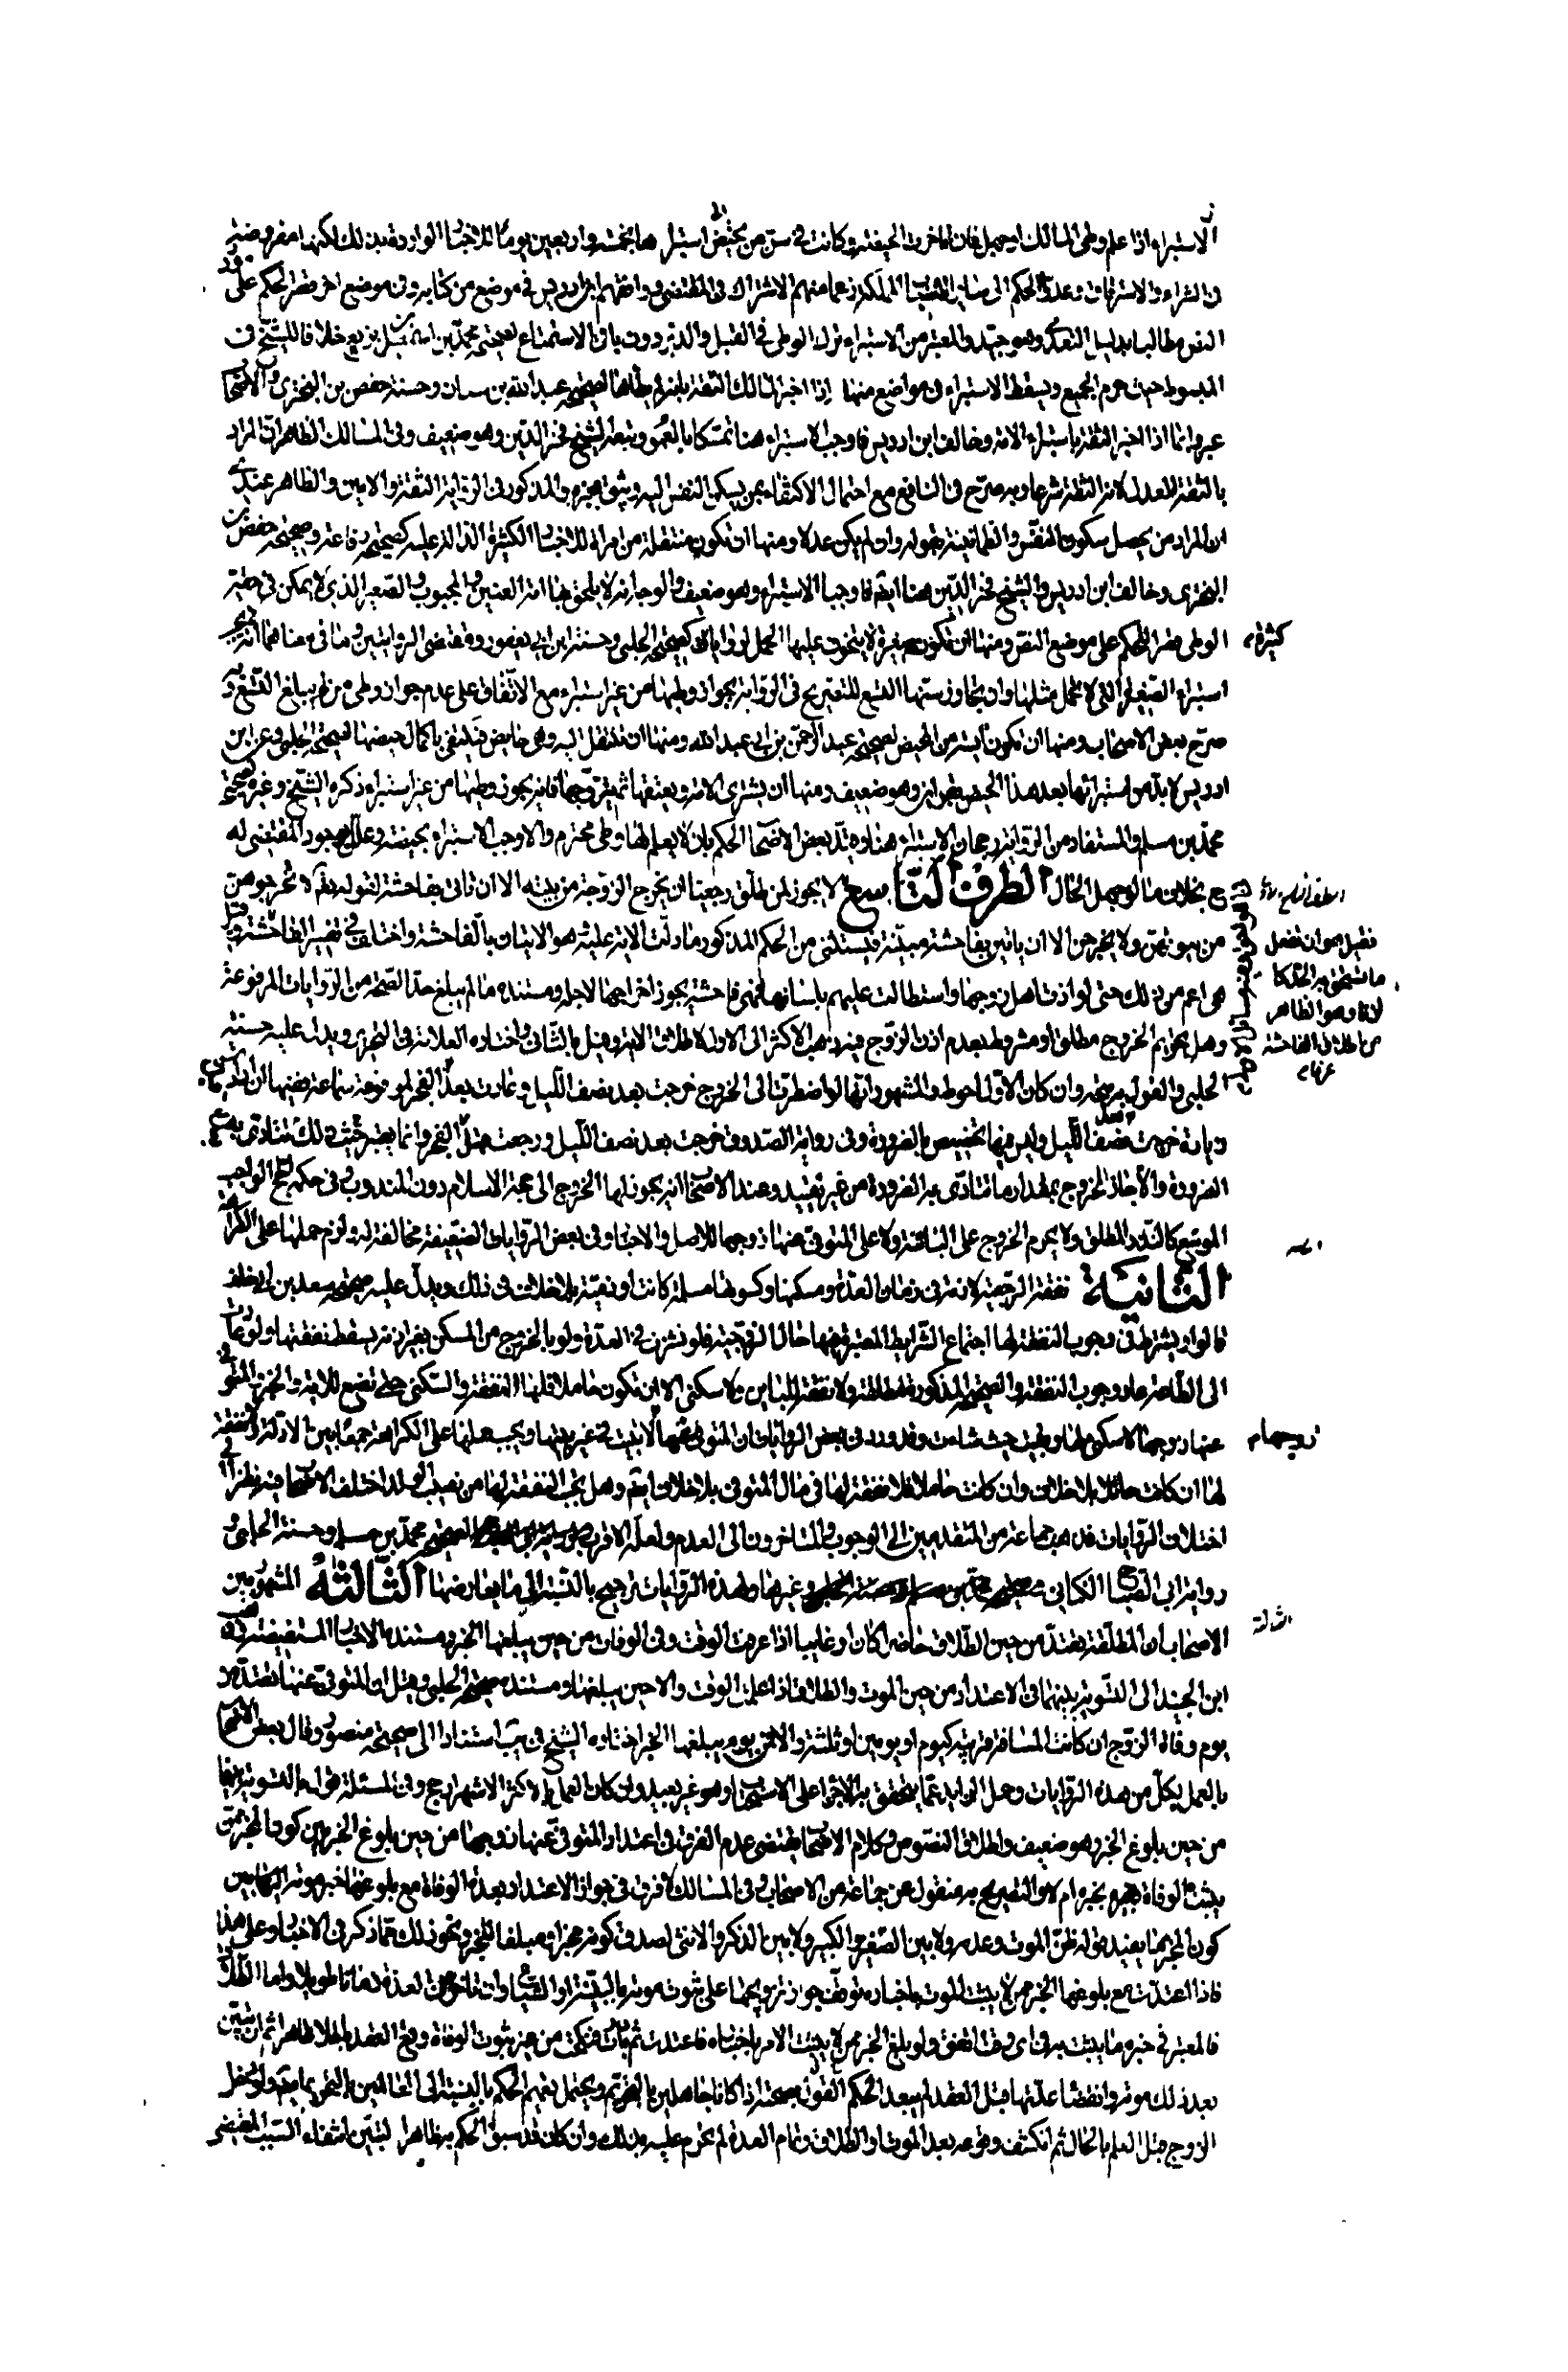 الاستبراء اذا علم وطى المالك او جهل فان تاخرت الحيضة وكانت فى سن من تحيض استبراها بخمسة واربعين يوما للاخبار الواردة بذلك لكنها مفروضة
فى الشراء والاسترقاق وعدوا الحكم الى ساير اسباب الملك زعما منهم الاشتراك فى المقتضى ووافقهم ابن ادريس فى موضع من كتابه وفى موضع اخر قصر الحكم على
النص مطالبا بدليل التعدى وهو جيد والمعتبر من الاستبراء ترك الوطى فى القبل والدبر دون باقى الاستمتاع لصحيحة محمد بن اسمعيل بن بزيع خلافا للشيخ فى
المبسوط حيث حرم الجميع ويسقط الاستبراء فى مواضع منها اذا اخبر المالك الثقة بانه لم يطأها لصحيحة عبد الله بن سنان وحسنة حفص بن البخترى
اذا اخبر الثقة باستبراء الامة وخالف ابن ادريس فاوجب الاستبراء هنا تمسكا بالعموم وتبعه الشيخ فخر الدين وهو ضعيف وفى المسالك الظاهر ان المراد
بالثقة العدل لانه الثقة شرعا وبه صرح فى النافع مع احتمال الاكتفاء بمن يسكن النفس اليه ويثق بخبره والمذكور فى الرواية الثقة والامين والظاهر عندى
ان المراد من يحصل سكون النفس والطمانينة بقوله وان لم يكن عدلا ومنها ان تكون منتقلة من امراة للاخبار الكثيرة الدالة عليه كصحيحة رفاعة وصحيحة حفص بن
البخترى وخالف ابن ادريس والشيخ فخر الدين هنا ايضا فاوجبا الاستبراء وهو ضعيف والوجه انه لا يلحق بها امة العنين والمجبوب والصغير الذى لا يمكن فى حقه
الوطى قصرا للحكم على موضع النص ومنها ان تكون صغيرة لا يتخوف عليها الحمل لروايات كثيرة كصحيحة الحلبى وحسنة ابن ابى يعفور ومقتضى الروايتين وما فى معناهما
استبراء الصغيرة التى لا تحمل مثلها وان تجاوز سنها التسع للتصريح فى الرواية بجواز وطيها من غير استبراء مع الاتفاق على عدم جواز وطى من لم يبلغ التسع وقد
صرح بعض الاصحاب ومنها ان تكون ايسة من الحيض لصحيحة عبد الرحمن بن ابى عبد الله ومنها ان تنتقل اليه وهى حايض فيكتفى باكمال حيضها لصحيحة الحلبى وعن ابن
ادريس لابد من استبرائها بعد هذا الحيض بقرائن وهو ضعيف ومنها ان يشترى الامة ويعتقها ثم يتزوجها فانه يجوز وطيها من غير استبراء ذكره الشيخ وغيره لصحيحة
محمد بن مسلم والمستفاد من الرواية رجحان الاستبراء هنا وقيد بعض الاصحاب الحكم بان لا يعلم لها وطى محترم والا وجب الاستبراء بحيضة وعلل بوجود المقتضى له
ح بخلاف ما لو جهل الحال الطرف التاسع لا يجوز لمن طلق رجعيا ان يخرج الزوجة من بيته الا ان تاتى بفاحشة لقوله تعالى لا تخرجوهن
من بيوتهن ولا يخرجن الا ان ياتين بفاحشة مبينة فيستثنى من الحكم المذكور ما دلت الاية عليه وهو الاتيان بالفاحشة واختلف فى تفسير الفاحشة
فقيل هو ان تفعل
ما تستحق به الحد كالزنا وهو الظاهر
من اطلاق الفاحشة
عرفا
هى اعم من ذلك حتى لو اذت اهل زوجها واستطالت عليهم بلسانها فهى فاحشة يجوز اخراجها لاجله ومستنده ما لم يبلغ حد الصحة من الروايات المرفوعة
وهل تحريم الخروج مطلق او مشروط بعدم اذن الزوج فيه ذهب الاكثر الى الاول لاطلاق الاية وقيل بالثانى واختاره العلامة فى التحرير ويدل عليه حسنة
الحلبى والقول به متجه وان كان الاول احوط والمشهور انها لو اضطرت الى الخروج خرجت بعد نصف الليل وعادت بعد الفجر لموثقة سماعة
زيارة خرجت بعد نصف الليل وليس فيها تخصيص بالضرورة وفى رواية الصدوق خرجت بعد نصف الليل ورجعت قبل الفجر وانما يعتبر حيث ذلك تتادى به
الضرورة والا جاز الخروج بمقدار ما تتادى به الضرورة من غير تقييد وعند الاصحاب انه يجوز لها الخروج الى حجة الاسلام دون المندوب وفى حكم الحج الواجب
الموسع كالنذر المطلق ولا يحرم الخروج على البائنة ولا على المتوفى عنها زوجها للاصل والاخبار وفى بعض الروايات الضعيفة مخالفة له ولزم حملها على الكراهة
الثانية نفقة الرجعية لازمة فى زمان العدة ومسكنها وكسوتها مسلمة كانت او ذمية بلا خلاف فى ذلك ويدل عليه صحيحة سعد بن ابى خلف
قالوا ويشترط فى وجوب النفقة لها اجتماع الشرايط المعتبرة فيها حال الزوجية فلو نشزت فى العدة ولو بالخروج من المسكن بغير اذنه يسقط نفقتها ولو عادت
الى الطاعة عاد وجوب النفقة والصحيحة المذكورة مطلقة ولا نفقة للباين ولا سكنى الا ان تكون حاملا فلها النفقة والسكنى حتى تضع للاية والخبر والمتوفى
عنها زوجها لا سكنى لها وتبيت حيث شاءت وقد ورد فى بعض الروايات ان المتوفى عنها زوجها لا تبيت فى غير بيتها ويجب حملها على الكراهة جمعا بين الادلة ولا نفقة
لها ان كانت حائلا بلا خلاف وان كانت حاملا فلا نفقة لها فى مال المتوفى بلا خلاف ايضا وهل تجب النفقة لها من نصيب الولد اختلف الاصحاب فيه نظرا الى
اختلاف الروايات فذهب جماعة من المتقدمين الى الوجوب والمتاخرون الى العدم ولعله الاقرب لصحيحة محمد بن مسلم وحسنة الحلبى و
رواية ابى الصباح الكنانى وغيرها ولهذه الروايات ترجيح بالنسبة الى ما يعارضها الثالثة المشهور بين
الاصحاب ان المطلقة تعتد من حين الطلاق حاضرا كان او غايبا اذا عرفت الوقت وفى الوفات من حين يبلغها الخبر ومستنده الاخبار المستفيضة وذهب
ابن الجنيد الى التسوية بينهما فى الاعتداد من حين الموت والطلاق اذا علمت الوقت والا حين يبلغها ومستنده صحيحة الحلبى وقيل ان المتوفى عنها تعتد من
يوم وفاة الزوج ان كانت المسافة قريبة كيوم او يومين او ثلثة والا فمن يوم يبلغها الخبر اختاره الشيخ فى يب استنادا الى صحيحة منصور وقال بعض الاصحاب
بالعمل بكل من هذه الروايات وحمل الزايد عما يتحقق به الاجزاء على الاستحباب وهو غير بعيد وان كان العمل بالاكثر الاشهر ارجح وفى المسئلة قول بالتسوية بينهما
من حين بلوغ الخبر وهو ضعيف واطلاق النصوص وكلام الاصحاب يقتضى عدم الفرق فى اعتداد المتوفى عنها زوجها من حين بلوغ الخبر بين كون المخبر ممن
يثبت الوفاة بخبره ام لا والتصريح به منقول عن جماعة من الاصحاب وفى المسالك لا فرق فى جواز الاعتداد بعدة الوفاة مع بلوغها خبر موته بين
كون المخبر ممن يفيد قوله ظن الموت وعدمه ولا بين الصغير والكبير ولا بين الذكر والانثى لصدق كونه مخبرا ومبلغا للخبر ونحو ذلك مما ذكر فى الاخبار وعلى هذا
فاذا اعتدت مع بلوغها الخبر ممن لا يثبت الموت باخباره توقف جواز تزويجها على ثبوت موته بالبينة او الشياع وان تاخر عن العدة زمانا طويلا واما الطلاق
فالمعتبر فى خبره ما يثبت به فى اى وقت اتفق ولو بلغ الخبر ممن لا يثبت الامر باخباره فاعتدت ثم بادرت فنكحت من غير ثبوت الوفاة وقع العقد باطلا ظاهرا ثم ان تبين
بعد ذلك موته وانقضاء عدتها قبل العقد لم يبعد الحكم بصحته اذا كانا جاهلين بالتحريم ويحتمل تعميم الحكم بالنسبة الى العالمين بالتحريم ايضا ولو دخل
الزوج قبل العلم بالحال ثم انكشف وقوعه بعد الموت او الطلاق وتمام العدة لم تحرم عليه بذلك وان كان قد سبق الحكم به ظاهرا لتبين انتفاء السبب المقتضى